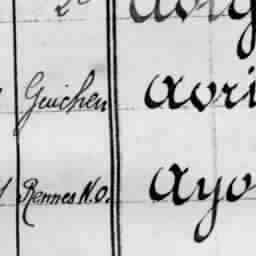 Guichen avri
Rennes N.O. ayo